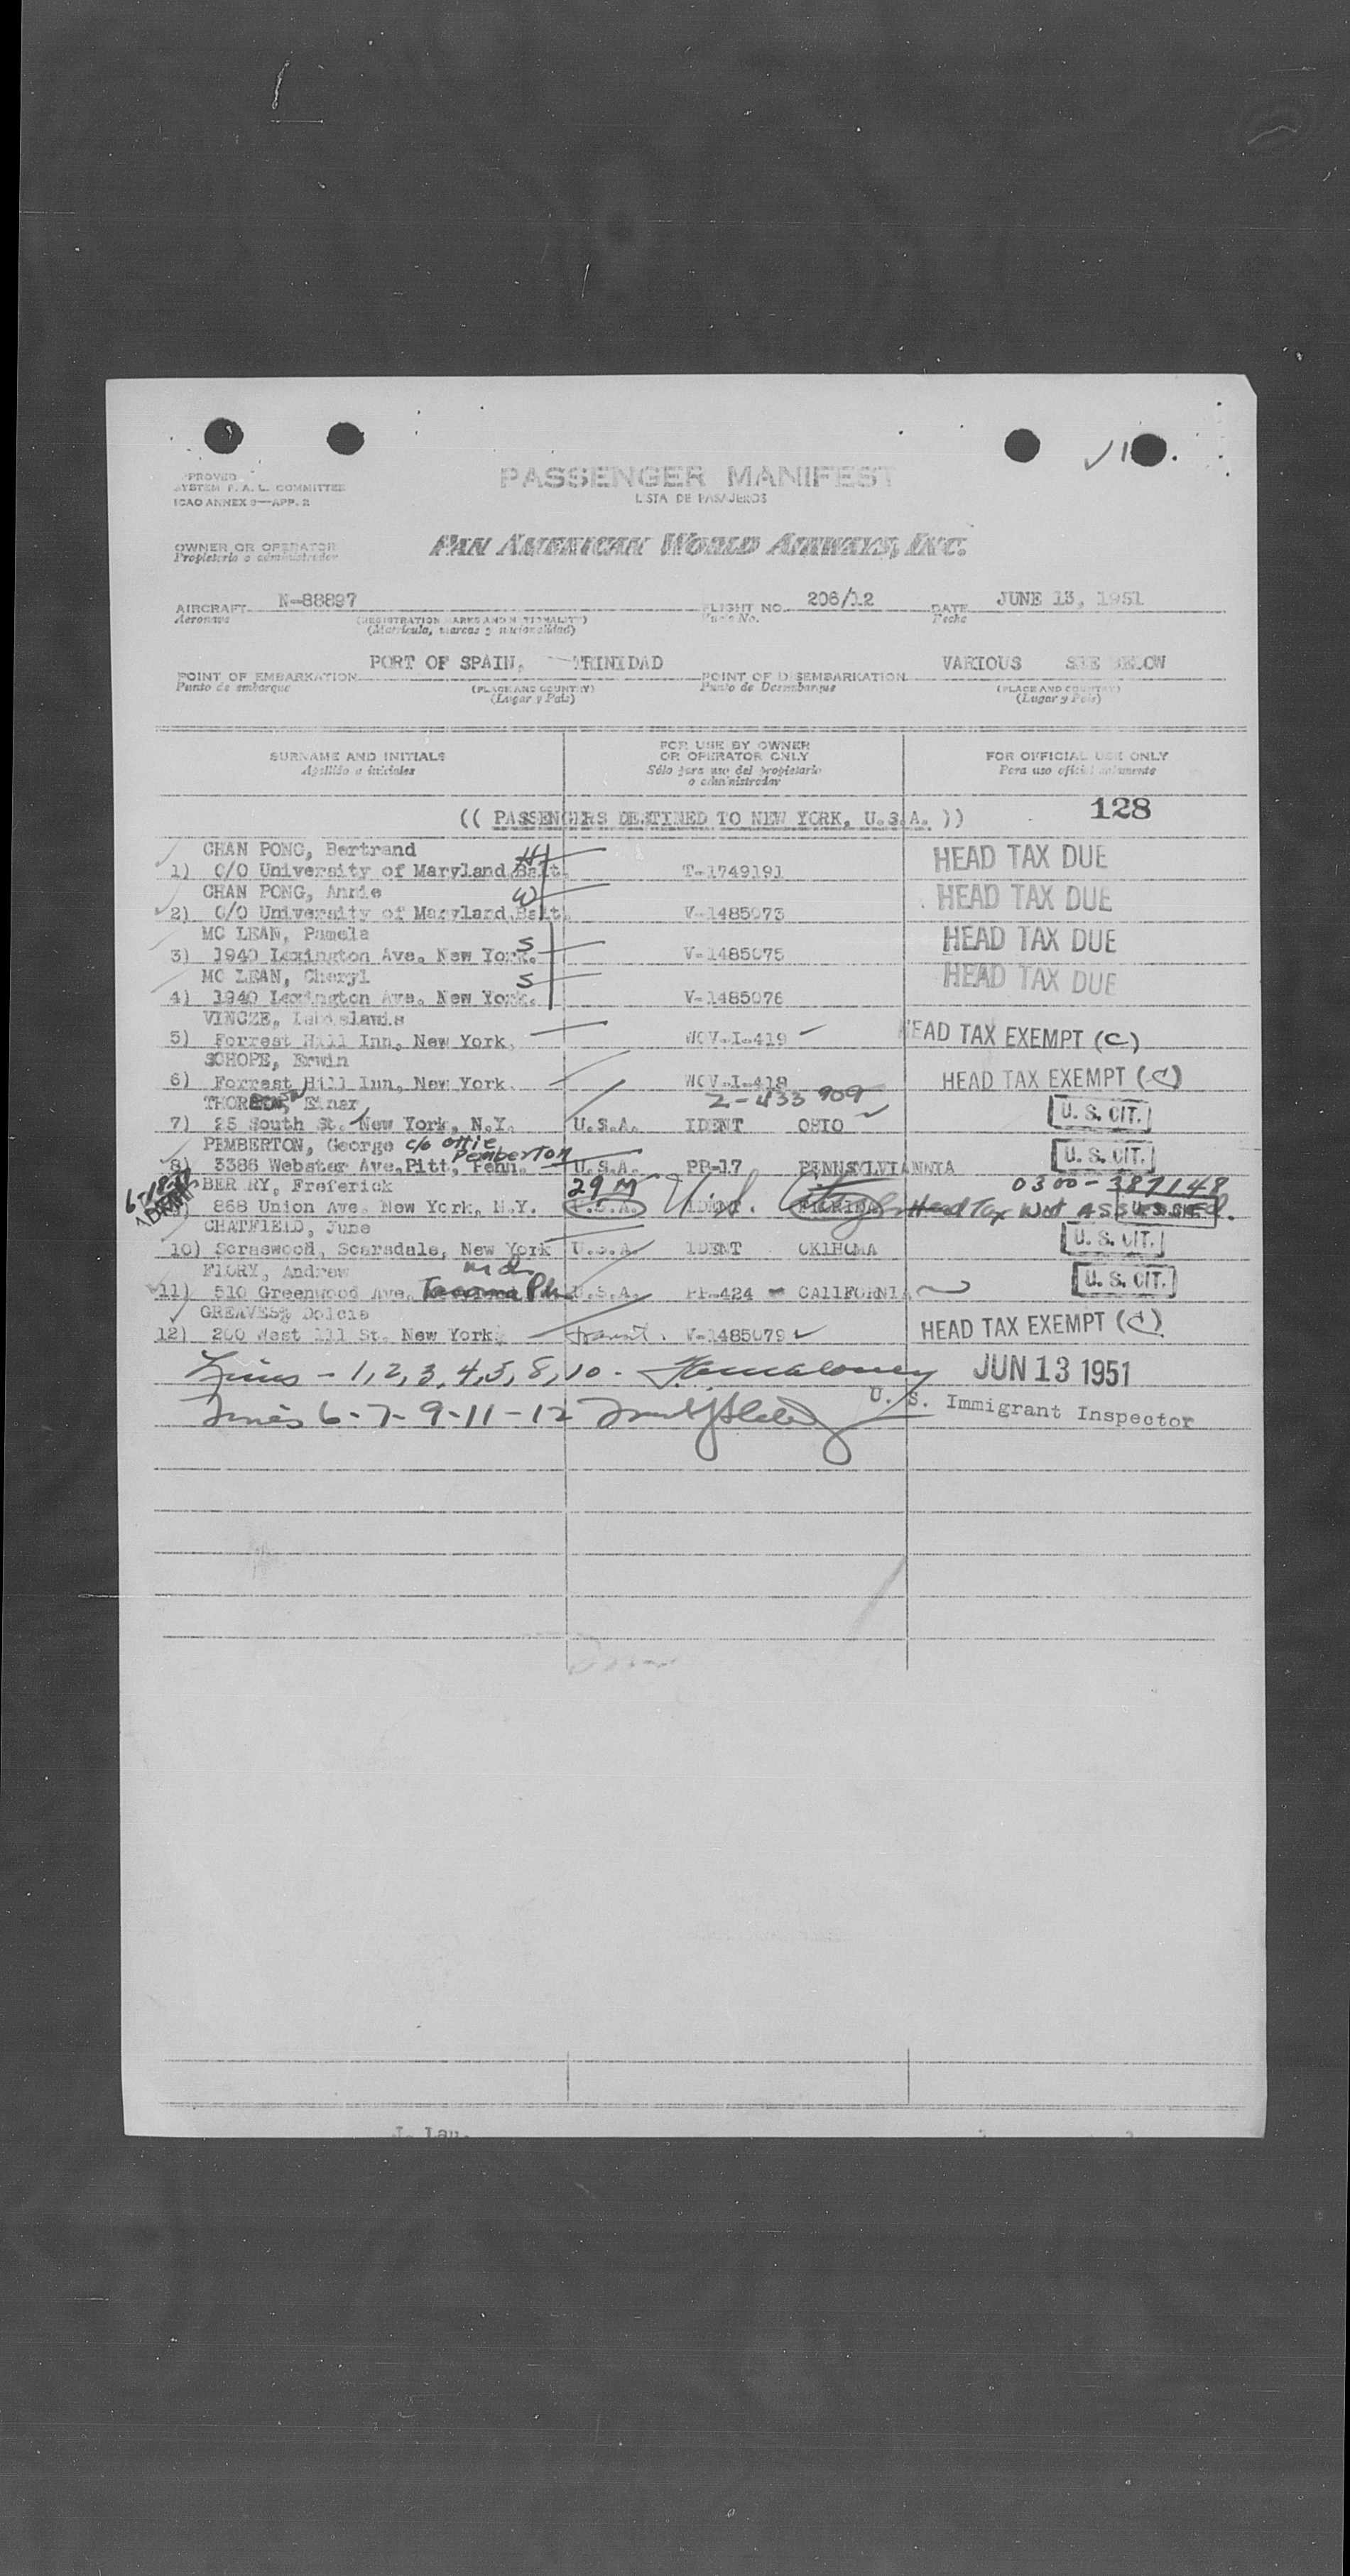 ✓ 1
APPROVED
SYSTEM F. A. L. COMMITTEE
ICAO ANNEX 9—APP. 2
PASSENGER MANIFEST
LISTA DE PASAJEROS
OWNER OR OPERATOR
Propietario o administrador
PAN AMERICAN WORLD AIRWAYS, INC.
AIRCRAFT N-88897 FLIGHT NO. 206/12 DATE JUNE 13, 1951
Aeronave (REGISTRATION MARKS AND NATIONALITY) Vuelo No. Fecha
(Matrícula, marcas y nacionalidad)
POINT OF EMBARKATION PORT OF SPAIN, TRINIDAD POINT OF DISEMBARKATION VARIOUS SEE BELOW
Punto de embarque (PLACE AND COUNTRY) Punto de Desembarque (PLACE AND COUNTRY)
(Lugar y País) (Lugar y País)
SURNAME AND INITIALS FOR USE BY OWNER OR OPERATOR ONLY FOR OFFICIAL USE ONLY
Apellido e iniciales Sólo para uso del propietario o administrador Para uso oficial solamente
(( PASSENGERS DESTINED TO NEW YORK, U.S.A. )) 128
CHAN PONG, Bertrand H HEAD TAX DUE
1) C/O University of Maryland Balt. T-1749191
CHAN PONG, Annie W HEAD TAX DUE
2) C/O University of Maryland Balt. V-1485073
MC LEAN, Pamela S HEAD TAX DUE
3) 1940 Lexington Ave. New York. V-1485075
MC LEAN, Cheryl S HEAD TAX DUE
4) 1940 Lexington Ave. New York. V-1485076
VINCZE,
5) Forrest Hill Inn, New York. WOV-I-419 HEAD TAX EXEMPT (C)
SCHOPE, Erwin
6) Forrest Hill Inn, New York. WOV-I-418 HEAD TAX EXEMPT (C)
Einar Z-433 909
7) 25 South St. New York, N.Y. U.S.A. IDENT OHIO U. S. CIT.
PEMBERTON, George c/o Ottie Pemberton
8) 3386 Webster Ave, Pitt, Penn. U.S.A. PP-17 PENNSYLVIANNIA U. S. CIT.
BERRY, Freferick 29 M 0300-387148
9) 868 Union Ave. New York, N.Y. U.S.A. IDENT U.S. Head Tax Not ASSESSED.
CHATFIELD, June
10) Scraswood, Scarsdale, New York U.S.A IDENT OKlHOMA U. S. CIT.
FIORY, Andrew
11) 510 Greenwood Ave. U.S.A. PP-424 - CAlIFORNIA U. S. CIT.
GREAVES, Dolcie
12) 200 West 111 St. New York. transit. V-1485079 HEAD TAX EXEMPT (C)
Lines - 1, 2, 3, 4, 5, 8, 10 - JUN 13 1951
Lines 6-7-9-11-12 U. S. Immigrant Inspector
J. Lau.